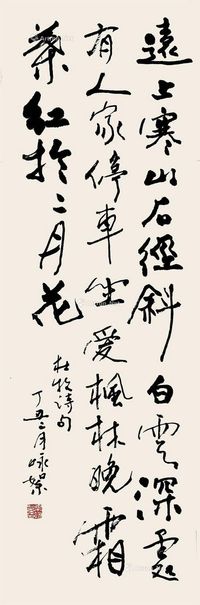 遠上寒山石徑斜白雲深處
有人家停車坐愛楓林晚霜
葉紅於二月花
杜牧詩句
丁丑二月